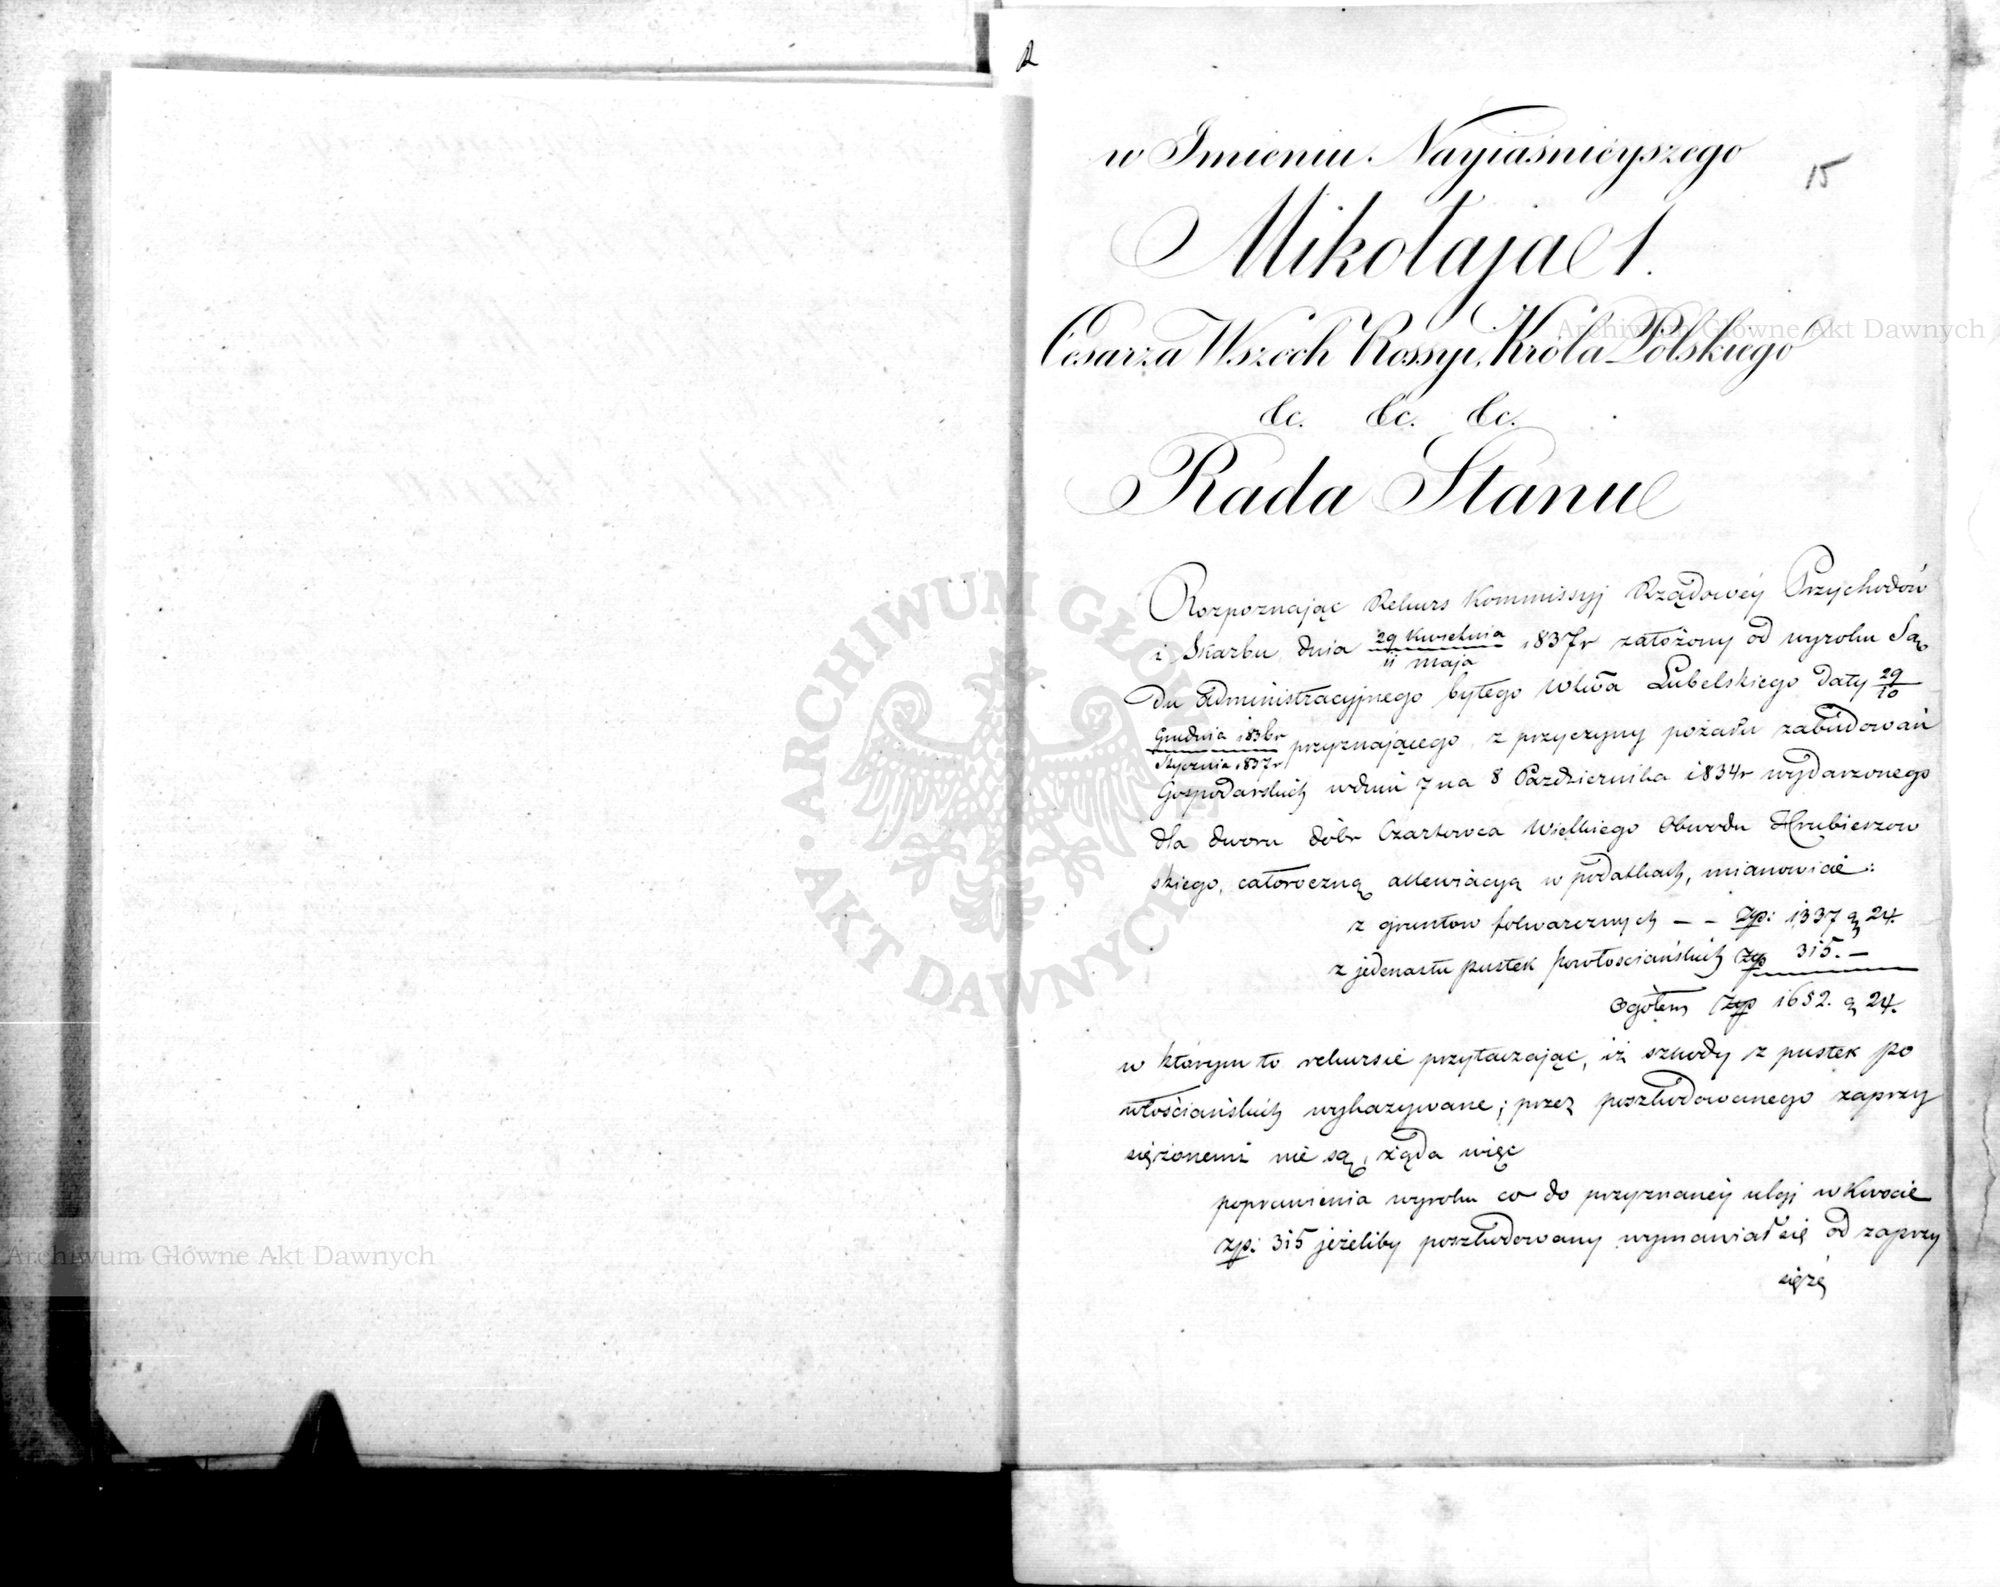 15
w Imieniu Nayiaśnieyszego
Mikołaja 1.
Cesarza Wszech Rossyi, Króla Polskiego
&c. &c. &c.
Rada Stanu
Rozpoznając Rekurs Kommissyj Rządowéy Przychodów
i Skarbu, dnia 29 Kwietnia / 11 maja 1837r założony od wyroku Są
du Administracyjnego byłego Wdwa Lubelskiego daty 29/10
Grudnia 1836r / Stycznia 1837r przyznającego, z przyczyny pożaru zabudowań
Gospodarskich wdniu 7 na 8 Października 1834r wydarzonego
dla dworu dóbr Czartowca Wielkiego Obwodu Hrubieszow
skiego, całoroczną allewiacyą w podatkach, mianowicie:
z gruntow folwarcznych – – Złp: 1337 g 24.
z jedenastu pustek powłosciańskich Złp 315. –
Ogółem Złp 1652. g 24.
w którym to rekursie przytaczając, iż szkody z pustek po
włościańskich wykazywane; przez poszkodowanego zaprzy
siężonemi nie są, rząda więc
poprawienia wyroku co do przyznanéy ulgi w Kwocie
złp: 315 jeżeliby poszkodowany wymawiał się od zaprzy
siężę
Archiwum Główne Akt Dawnych
Archiwum Główne Akt Dawnych
ARCHIWUM GŁÓWNE AKT DAWNYCH